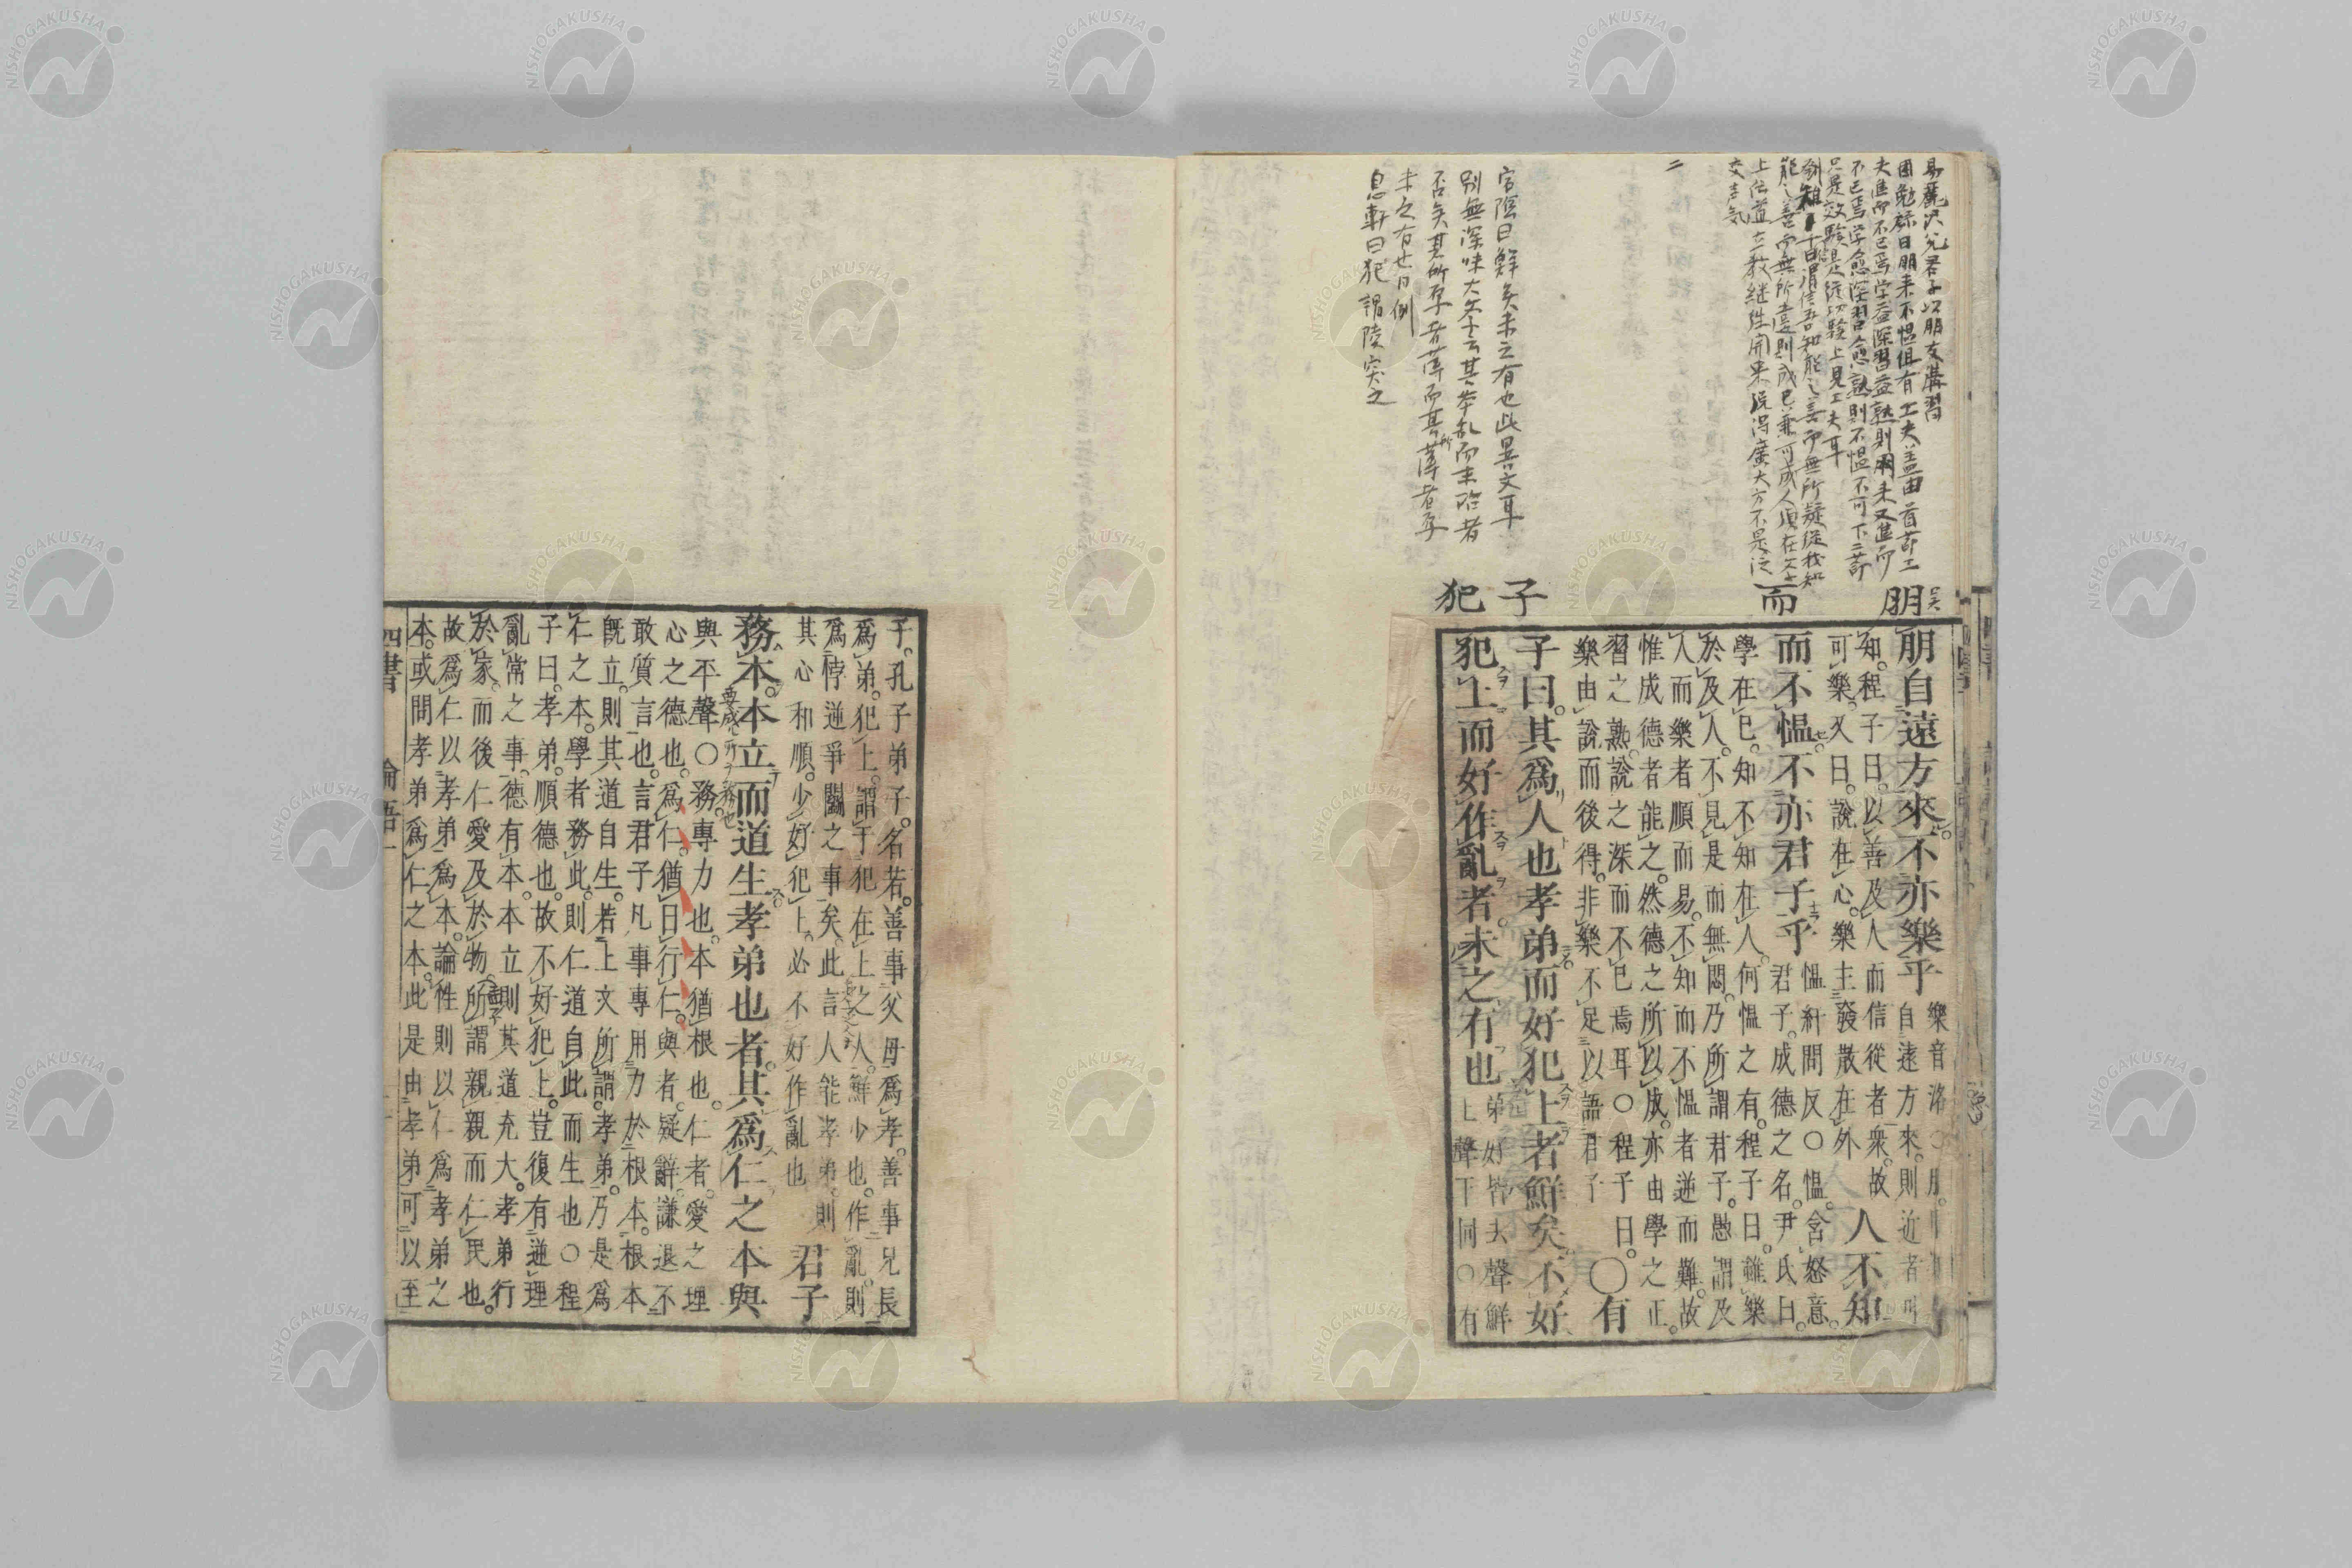 易麗沢兌君子以朋友講習
困勉録曰朋来不慍俱有工夫益由首節工
夫進而不已焉学益深習益熟則朋来又進而
不已焉学愈深習愈熟則不慍不可下二節
只是效驗是從功驗上見工夫耳
曰涓信吾知能之善而無所疑從我知
能之善而無所則成已兼可成人須在
上伝道立教継往開来説得廣大方不是泛
交声気
二
官陰曰鮮矣未之有也此畧文耳
別無深味大全云其本乱而末治者
否矣其所厚者薄而其所薄者厚
未之有也同例
息軒曰犯謂陵突之
朋
而
子
犯
朋自遠方來不亦樂乎樂音洛○朋
自遠方來。則近者可
知。程子曰。以善及人而信從者衆。故
可樂。又曰。說在心。樂主發散在外
人不知
而不慍不亦君子乎慍紆問反○慍。含怒意。
君子。成德之名。尹氏曰。
學在己。知不知在人。何慍之有。程子曰。雖樂
於及人。不見是而無悶。乃所謂君子。愚謂及
人而樂者順而易。不知而不慍者逆而難。故
惟成德者能之。然德之所以成。亦由學之正。
習之熟。說之深而不已焉耳○程子曰。
樂由說而後得。非樂不足以語君子
○有
子曰。其爲人也孝弟而好犯上者鮮矣不好
犯上而好作亂者。未之有也弟好皆去聲鮮
上聲下同○有
子。孔子弟子。名若。善事父母爲孝。善事兄長
爲弟。犯上。謂干犯在上之人。鮮少也。作亂。則
爲悖逆爭鬭之事矣。此言人能孝弟。則
其心和順。少好犯上。必不好作亂也
君子
務本。本立而道生。孝弟也者。其爲仁之本與
與平聲○務。專力也。本猶根也。仁者。愛之理
心之德也。爲仁。猶曰行仁。與者。疑辭。謙退不
敢質言也。言君子凡事專用力於根本。根本
旣立。則其道自生。若上文所謂孝弟。乃是爲
仁之本。學者務此。則仁道自此而生也○程
子曰。孝弟。順德也。故不好犯上。豈復有逆理
亂常之事。德有本。本立則其道充大。孝弟行
於家。而後仁愛及於物。所謂親親而仁民也。
故爲仁以孝弟爲本。論性則以仁爲孝弟之
本。或問孝弟爲仁之本。此是由孝弟可以至
四書 論語一
NISHOGAKUSHA